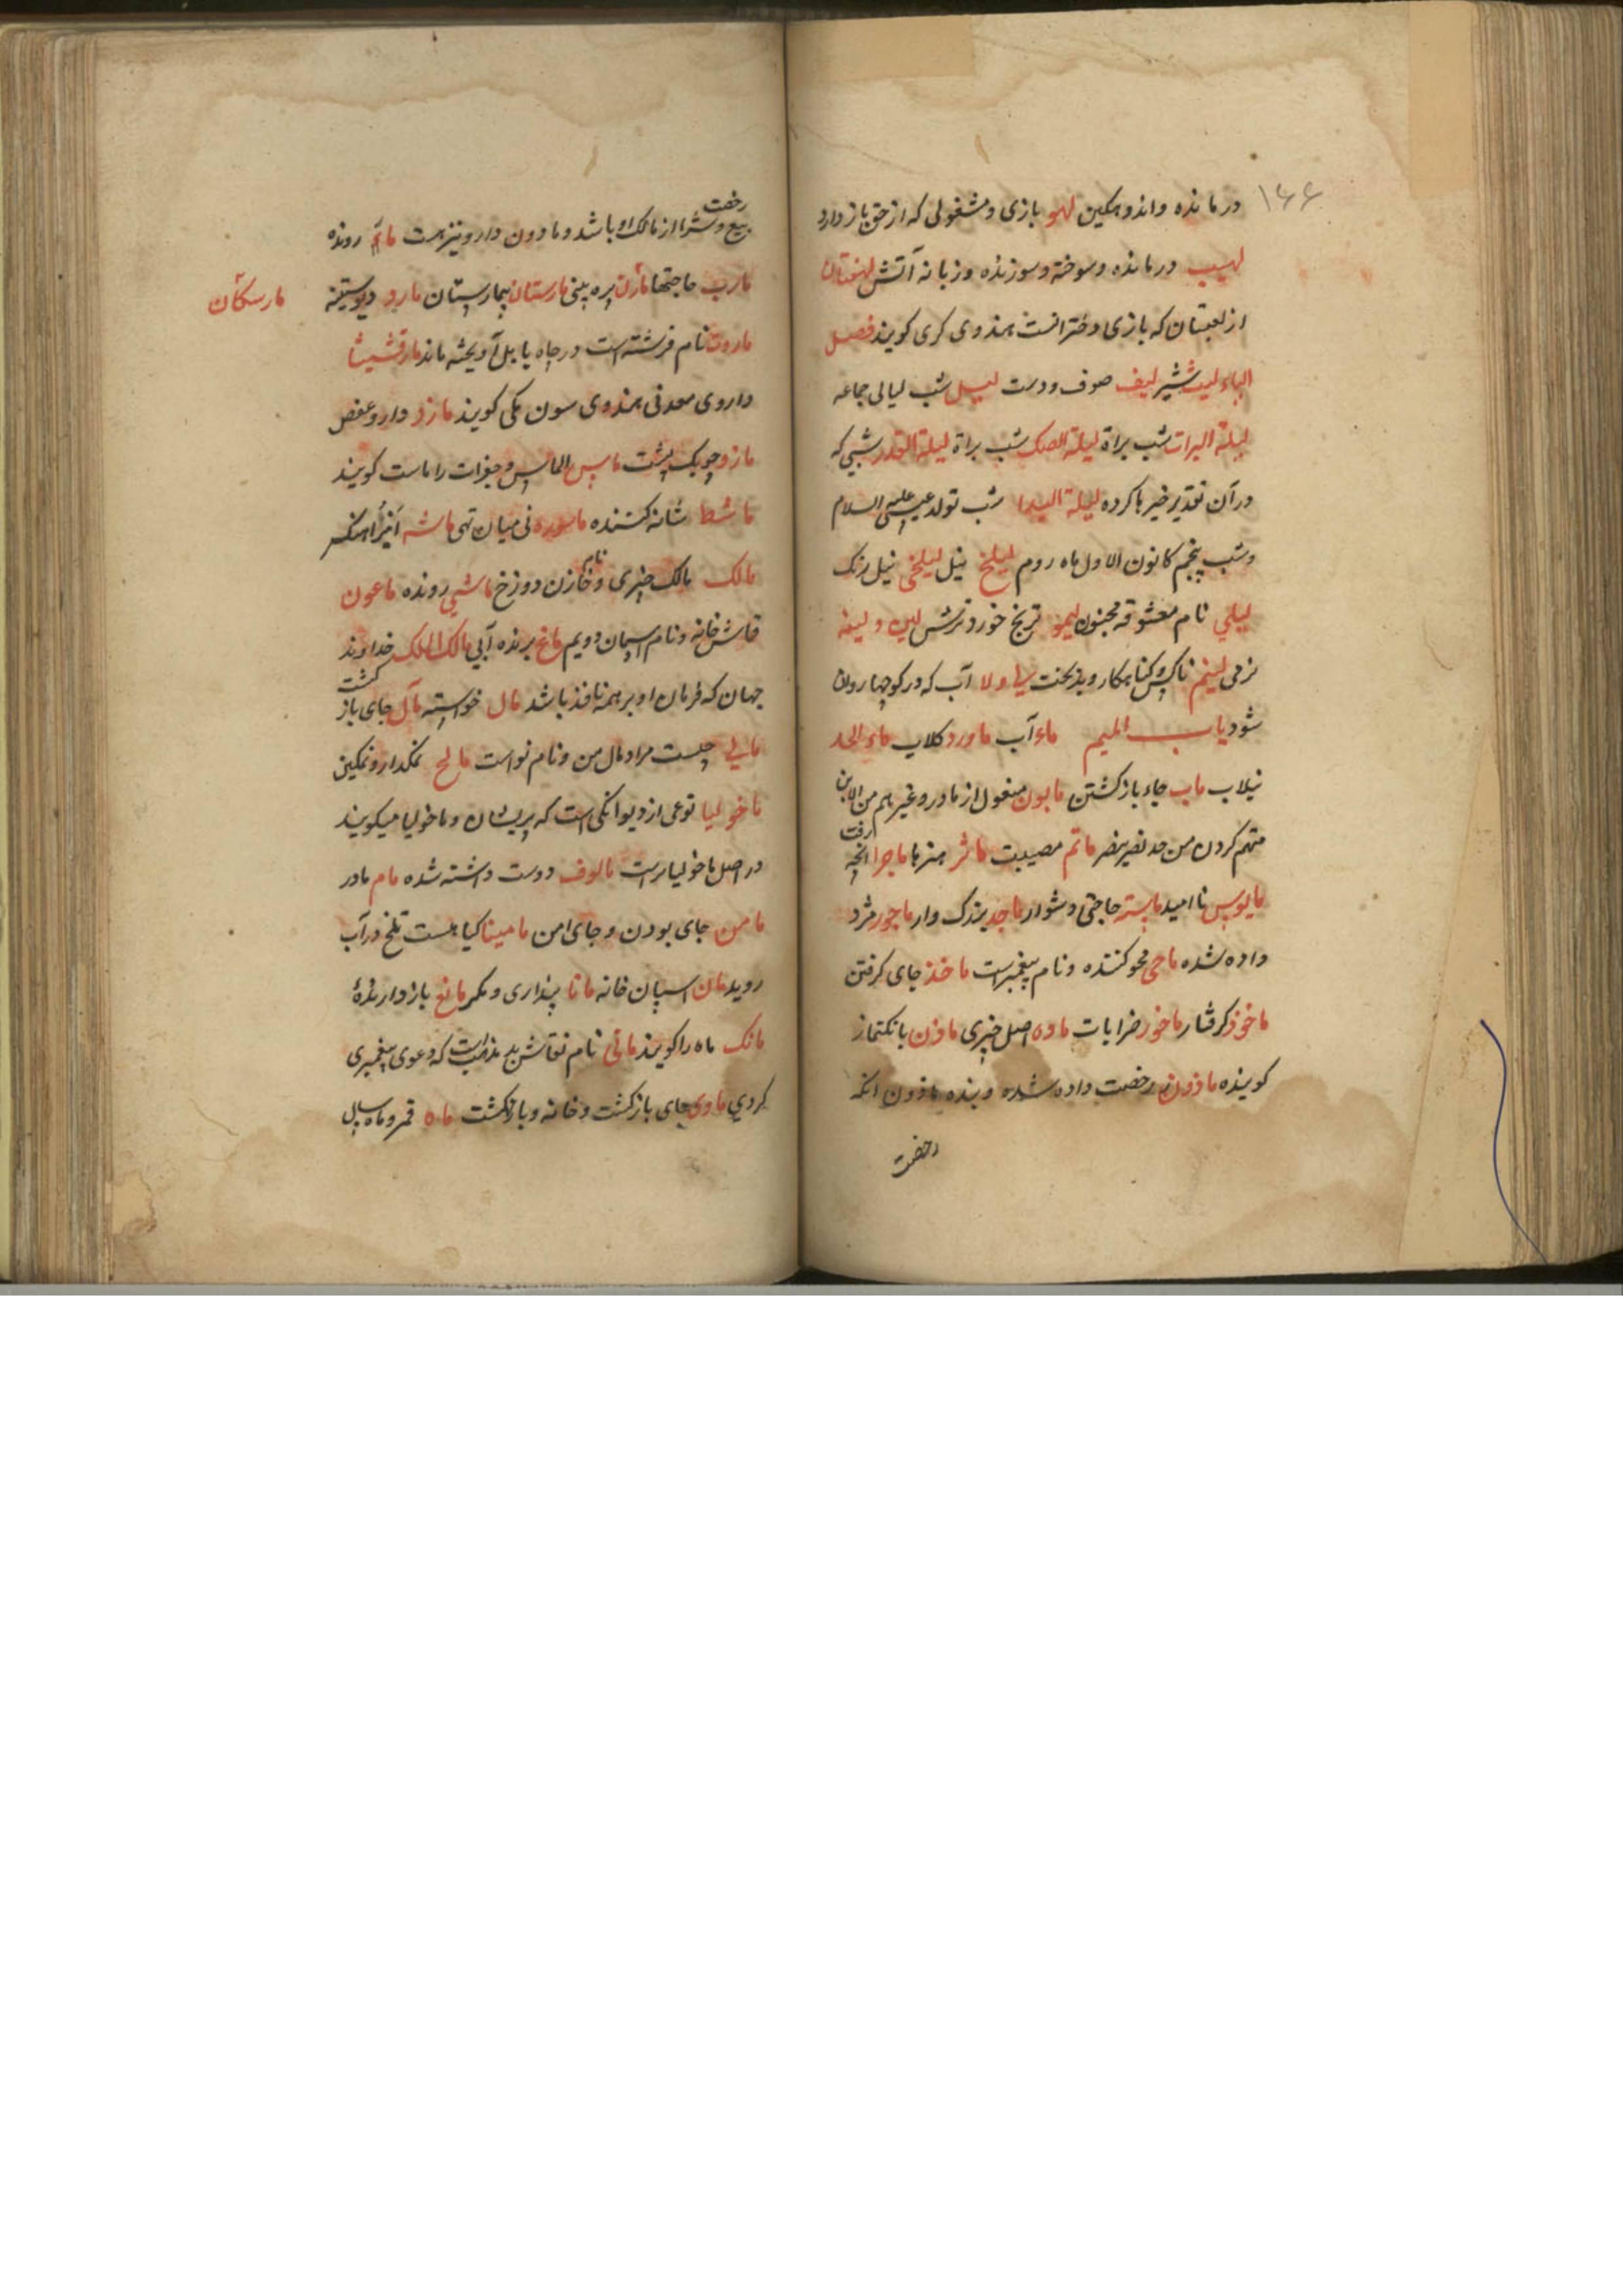 ۱۶۶
درمانده واندوهکین لهو بازی ومشغولی که از حق باز دارد
لهیب درمانده وسوخته وسوزنده وزبانه آتش لهفتان
از لعبتان که بازی دخترانست هندوی کری کویند فصل
الیاء لیث شیر لیف صوف ودست لیل شب لیالی جماعه
لیلة البرات شب براة لیلة الصک شب براة لیلة القدر شبی که
در آن تقدیر خیرها کرده لیلة الیلدا شب تولد عیسی علیه السلام
وشب پنجم کانون الاول ماه روم لیلخ نیل لیلخی نیل رنک
لیلی نام معشوقه مجنون لیمو ترنج خورد ترش لین و لینه
نرمی لییم ناکس وکناهکار وبدبخت لی ولا آب که در کوچها روان
شود باب المیم ماء آب ماورد کلاب ماء الخلد
نیلاب ماب جاء باز کشتن مابون مفعول از مادر وغیرهم من الابن
متهم کردن من حد نصر ینصر ماتم مصیبت ماثر هنرها ماجرا انچه رفت
مایوس ناامید مابسته حاجتی دشوار ماجد بزرک وار ماجور مزد
داده شده ماحی محو کننده ونام پیغمبرست ماخذ جای کرفتن
ماخوذ کرفتار ماخور خرابات ماده اصل چیزی ماذن بانک نماز
کوینده ماذون رخصت داده شده وبنده ماذون انکه
رخصت
رخصت
بیع وشرا از مالک او باشد ومادون دارو نیز هست مار رونده
مارب حاجتها مارن پره بینی مارستان بیمارستان مارد دیو ستیزنه
مارسکان
ماروت نام فرشته است در چاه بابل آویخته ماند مارقشیشا
داروی معدنی هندوی سون مکی کویند مازد دارو عفص
مازو چوبک پشت ماس الماس وجغرات را ماست کویند
ماشط شانه کننده ماسوره نی میان تهی ماشه انبر آهنکر
مالک مالک چیزی ونام خازن دوزخ ماشی رونده ماعون
قماش خانه ونام آسمان دویم ماتح برنده آبی مالک الملک خداوند
جهان که فرمان او بر همه نافذ باشد مال خواسته مآل جای باز کشت
مالی چیست مرا ومال من ونام نواست مالح نمکدار ونمکین
ماخولیا نوعی از دیوانکی است که پریشان وماخولیا میکویند
در اصل ماخولیاست مالوف دوست داشته شده مام مادر
مامن جای بودن وجای امن مامیثا کیاهست تلخ در آب
روید مان اسپان خانه مانا پنداری ومکر مانع باز دارنده
مانک ماه را کویند مانی نام نقاش بد مذهب است که دعوی پیغمبری
کردی ماوی جای باز کشت وخانه وباز کشت ماه قمر وماه سال